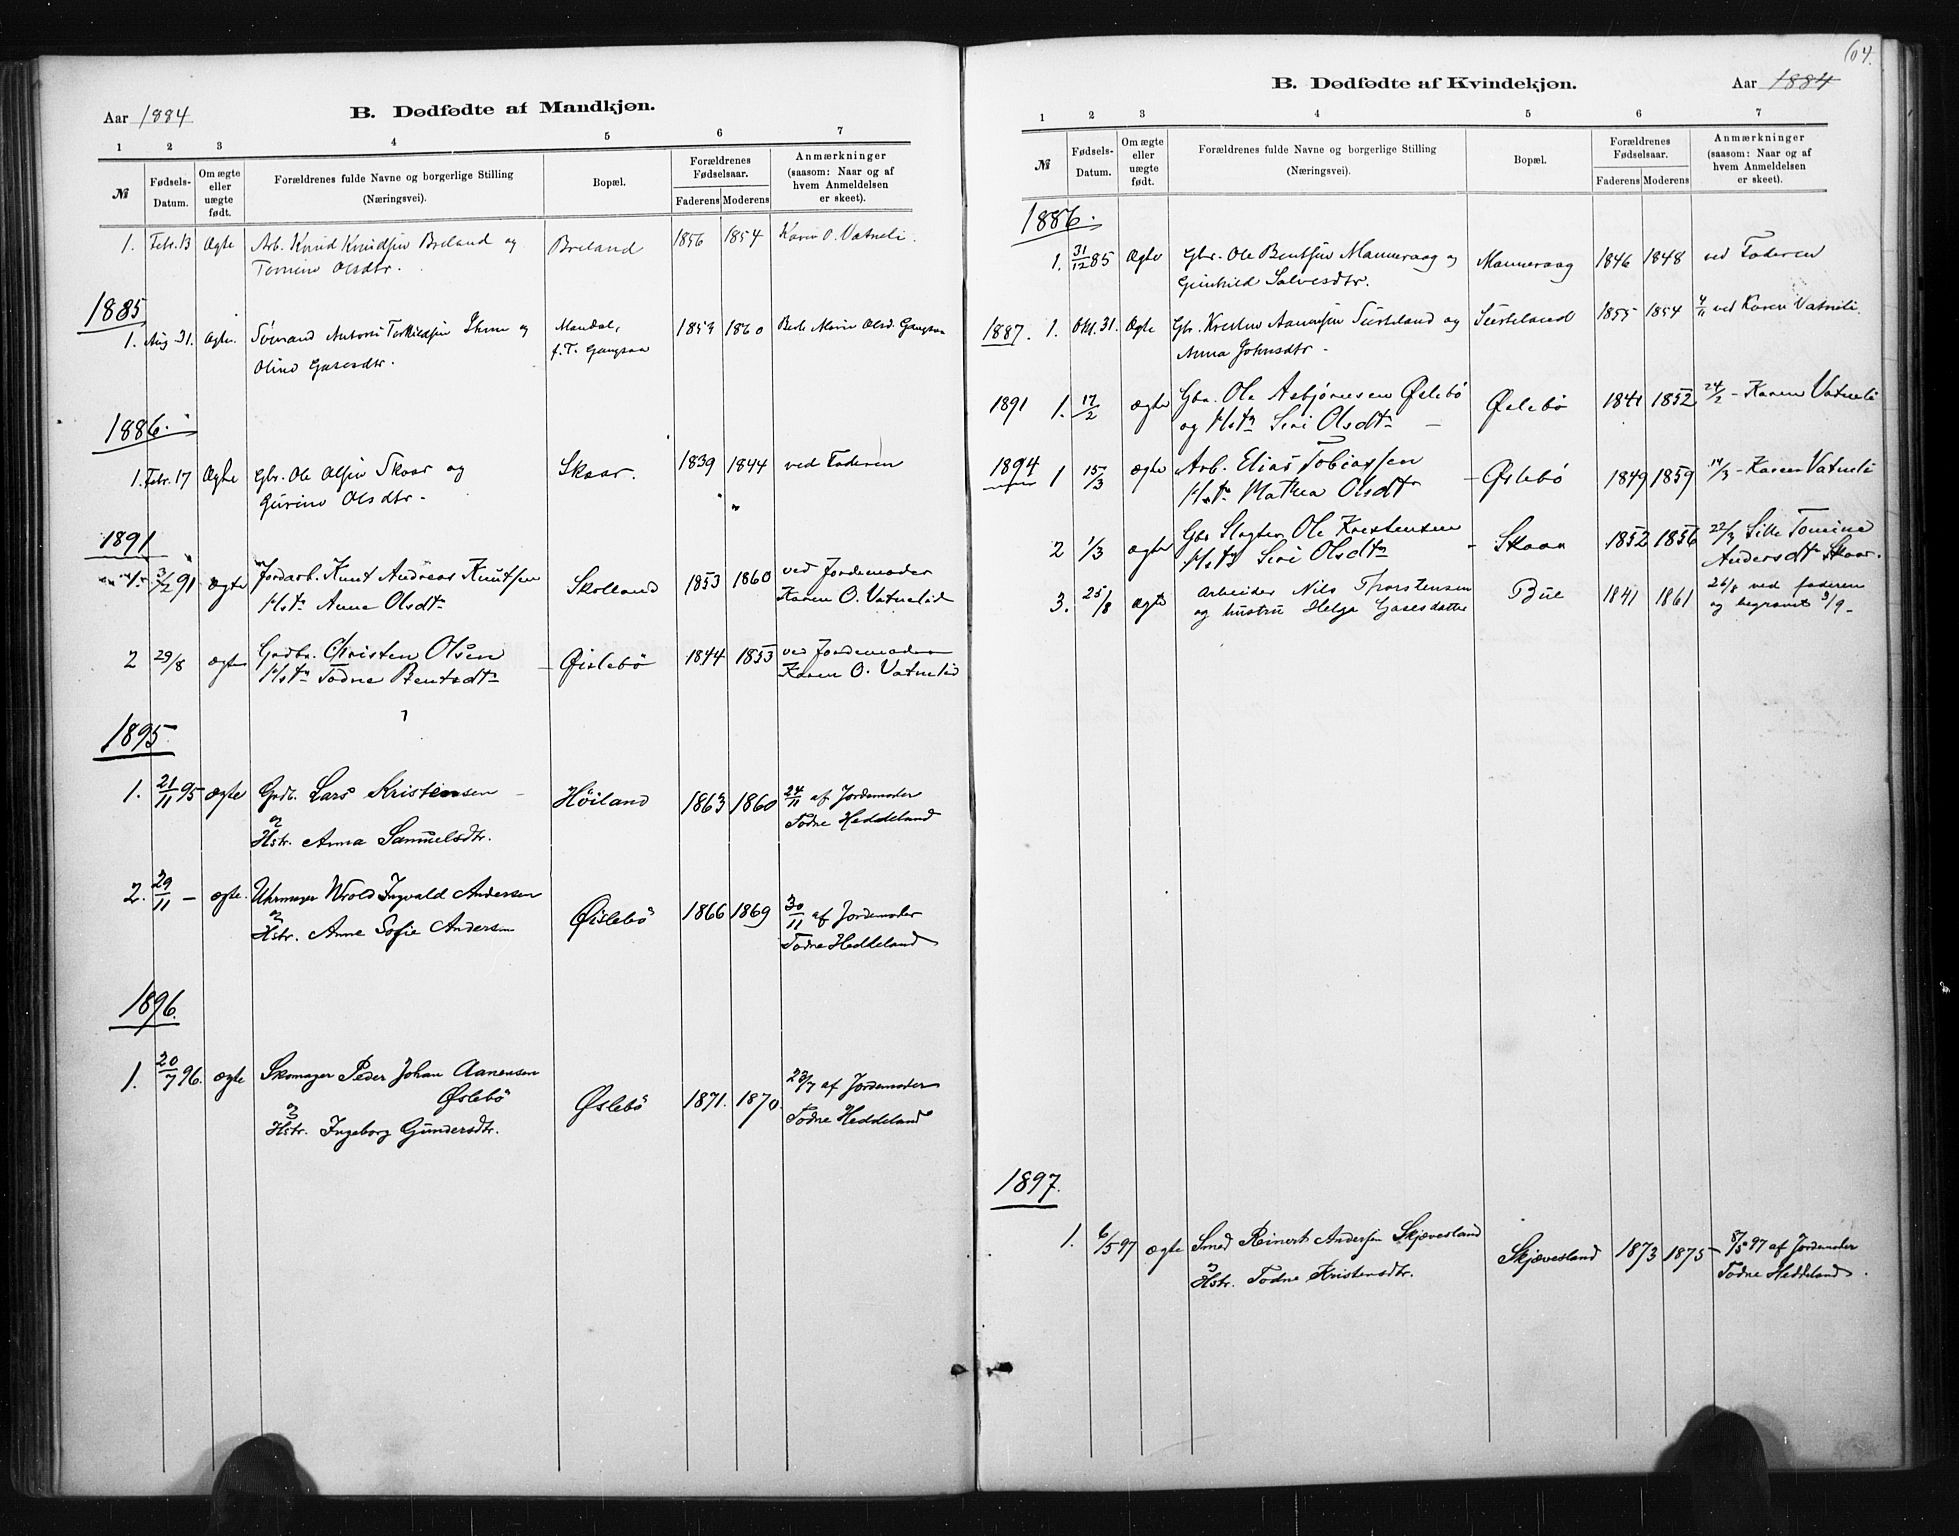 Aar 1884
B. Dødfødte af Mandkjøn.
1 2 3 4 5 6 7
№
Fødsels-Datum.
Om ægte eller uægte født.
Forældrenes fulde Navne og borgerlige Stilling (Næringsvei).
Bopæl.
Forældrenes Fødselsaar.
Faderens Moderens
Anmærkninger (saasom: Naar og af hvem Anmeldelsen er skeet).
1. Febr. 13 Ægte Arb. Knud Knudsen Breland og Breland 1856 1854 Karen O. Vatneli.
Tomine Olsdtr.
1885
1. Aug 31. Ægte. Antoni Torkildsen og Mandal, 1860
Oline Gasesdtr. f. T. Gangsaa
1886.
1. Febr. 17 Ægte Gbr. Ole Olsen Skaar og Skaar. 1839 1844 ved Faderen
Gurine Olsdtr.
1891
91 ægte Jordarb. Knut Andreas Knutsen Skolland 1853 1860 ved Jordemoder
Hstr Anne Olsdtr Karen O. Vatnelid
2 29/8 ægte Gordbr. Christen Olsen – Øislebö 1844 1853 ved Jordemoder
Hstr Todne Bentsdtr Karen O. Vatnelid
1895.
1. 21/11 95 ægte Grdb. Lars Kristensen – Höiland 1863 1860 24/11 af Jordemoder
og
Hstr. Anna Samuelsdtr. Todne Heddeland
2. 29/11 – ægte. Uhrmager Wrold Ingvald Andersen Øislebö 1866 1869 30/11 af Jordemoder
og
Hstr. Anne Sofie Andersen Todne Heddeland
1896.
1. 20/7 96. ægte Skomager Peder Johan Aanensen 23/7 af Jordemoder
Øslebö Øslebö 1871. 1870. Todne Heddeland
og
Hstr. Ingeborg Gundersdtr.
64.
B. Dødfødte af Kvindekjøn.
Aar 1884
1 2 3 4 5 6 7
№
Fødsels-Datum.
Om ægte eller uægte født.
Forældrenes fulde Navne og borgerlige Stilling (Næringsvei).
Bopæl.
Forældrenes Fødselsaar.
Faderens Moderens
Anmærkninger (saasom: Naar og af hvem Anmeldelsen er skeet).
1886.
1. 31/12 85 Ægte Gbr. Ole Bentsen Manneraag og Manneraag 1846 1848 ved Faderen
Gunhild Salvesdtr.
1887. 1. Okt. 31. Ægte Gbr. Kristen Aanensen og 1855 1854 4/11 ved Karen Vatneli.
Anna Johnsdtr
1891 1. 17/2 ægte Gbr. Ole Asbjörnsen Øslebö Øslebö 1841 1852 24/2 – Karen Vatneli
og Hstr Siri Olsdtr –
1894 1 15/3 ægte Arb. Elias Tobiassen – Øslebö 1849 1859 19/3 – Karen Vatneli
Hstr Mathea Olsdtr
2 1/3 ægte Gbr Slagter Ole Kristensen – Skaar 1852 1856 22/3 Silla Tomine
Hstr Siri Olsdtr Andersdtr Skaar.
3. 25/8 ægte Arbeider Nils Thorstensen Bue 1841 1861 26/8 ved faderen
og hustru Helga Gasesdatter og begravet 3/9 –
1897.
1. 6/5 97 ægte Smed Reinert Andersen Skjævesland Skjævesland 1873 1875 – 8/5 97 af Jordemoder
og
Hstr. Todne Kristensdtr. Todne Heddeland.